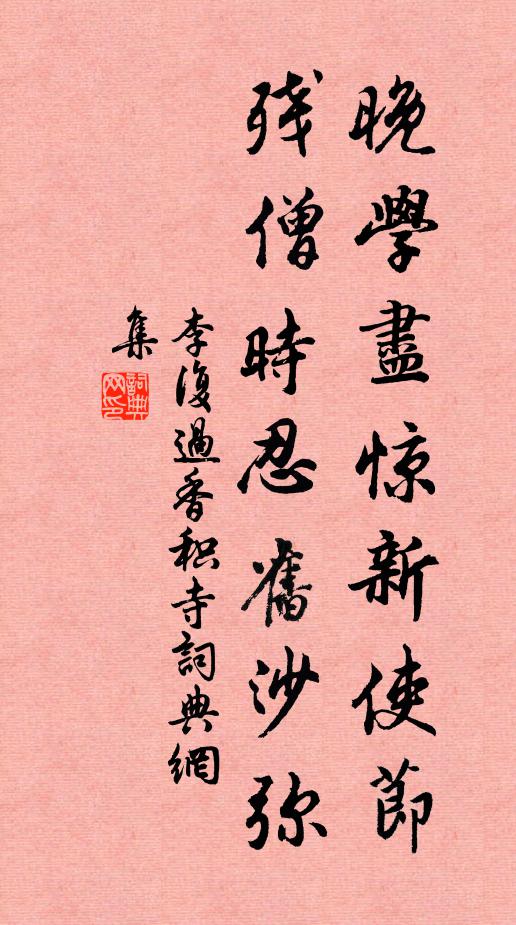 晚學盡惊新使節
残僧時忍舊沙弥
李復過香积寺詞典網
集
詞典网印